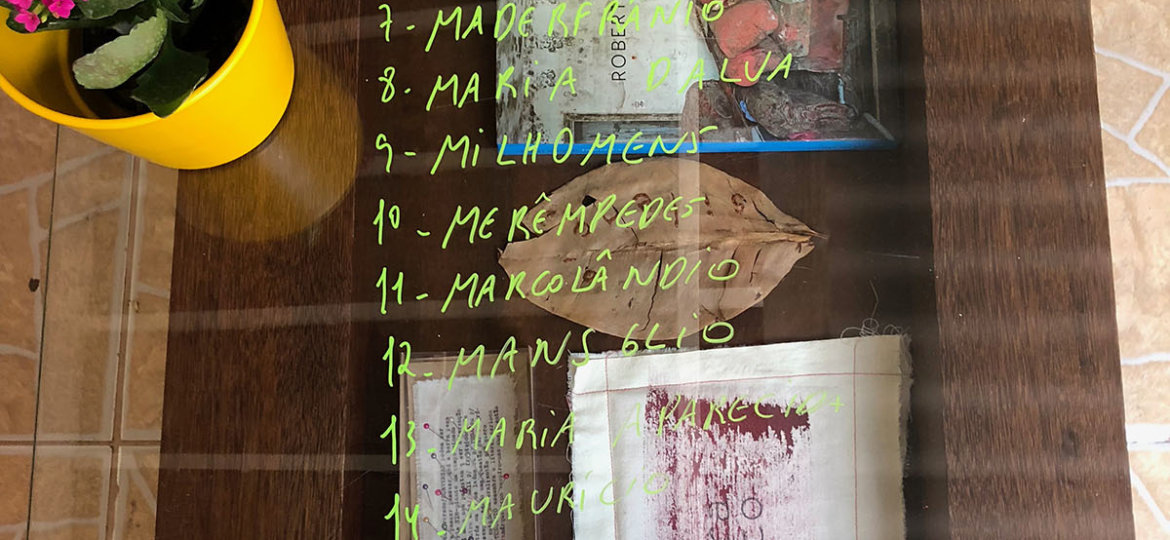 7- MADERFRANIO
8- MARIA DALVA
9- MILHOMENS
10- MERÊMPEDES
11- MARCOLÂNDIO
12- MANSGLIO
13- MARIA APARECIDA
14- MAURÍCIO
ROBERT